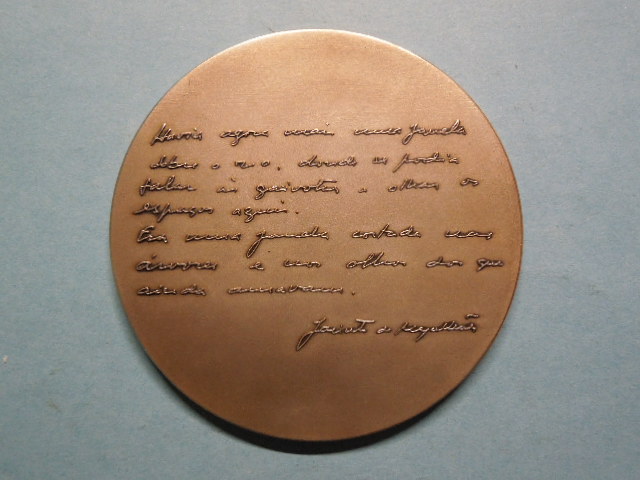 Havia agora mais uma janela
sobre o rio, donde se podia
falar às gaivotas e olhar os
espaços azuis.
Era uma janela cortada nas
árvores e nos olhos dos que
ainda amavam.
Jacinto de Magalhães